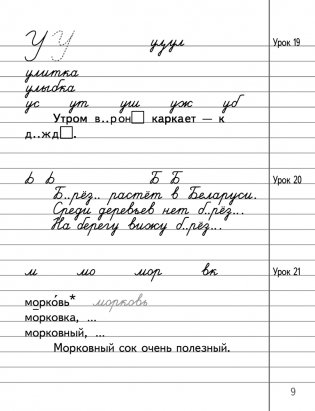 У У ууул Урок 19
улитка
улыбка
ус ут уш уж уб
Утром в..рон□ каркает — к
д..жд□.
Ь Ь Б Б Урок 20
Б..рёз.. растёт в Беларуси.
Среди деревьев нет б..рёз...
На берегу вижу б..рёз...
м мо мор вк Урок 21
морко́вь* морковь
морковка, ...
морковный, ...
Морковный сок очень полезный.
9